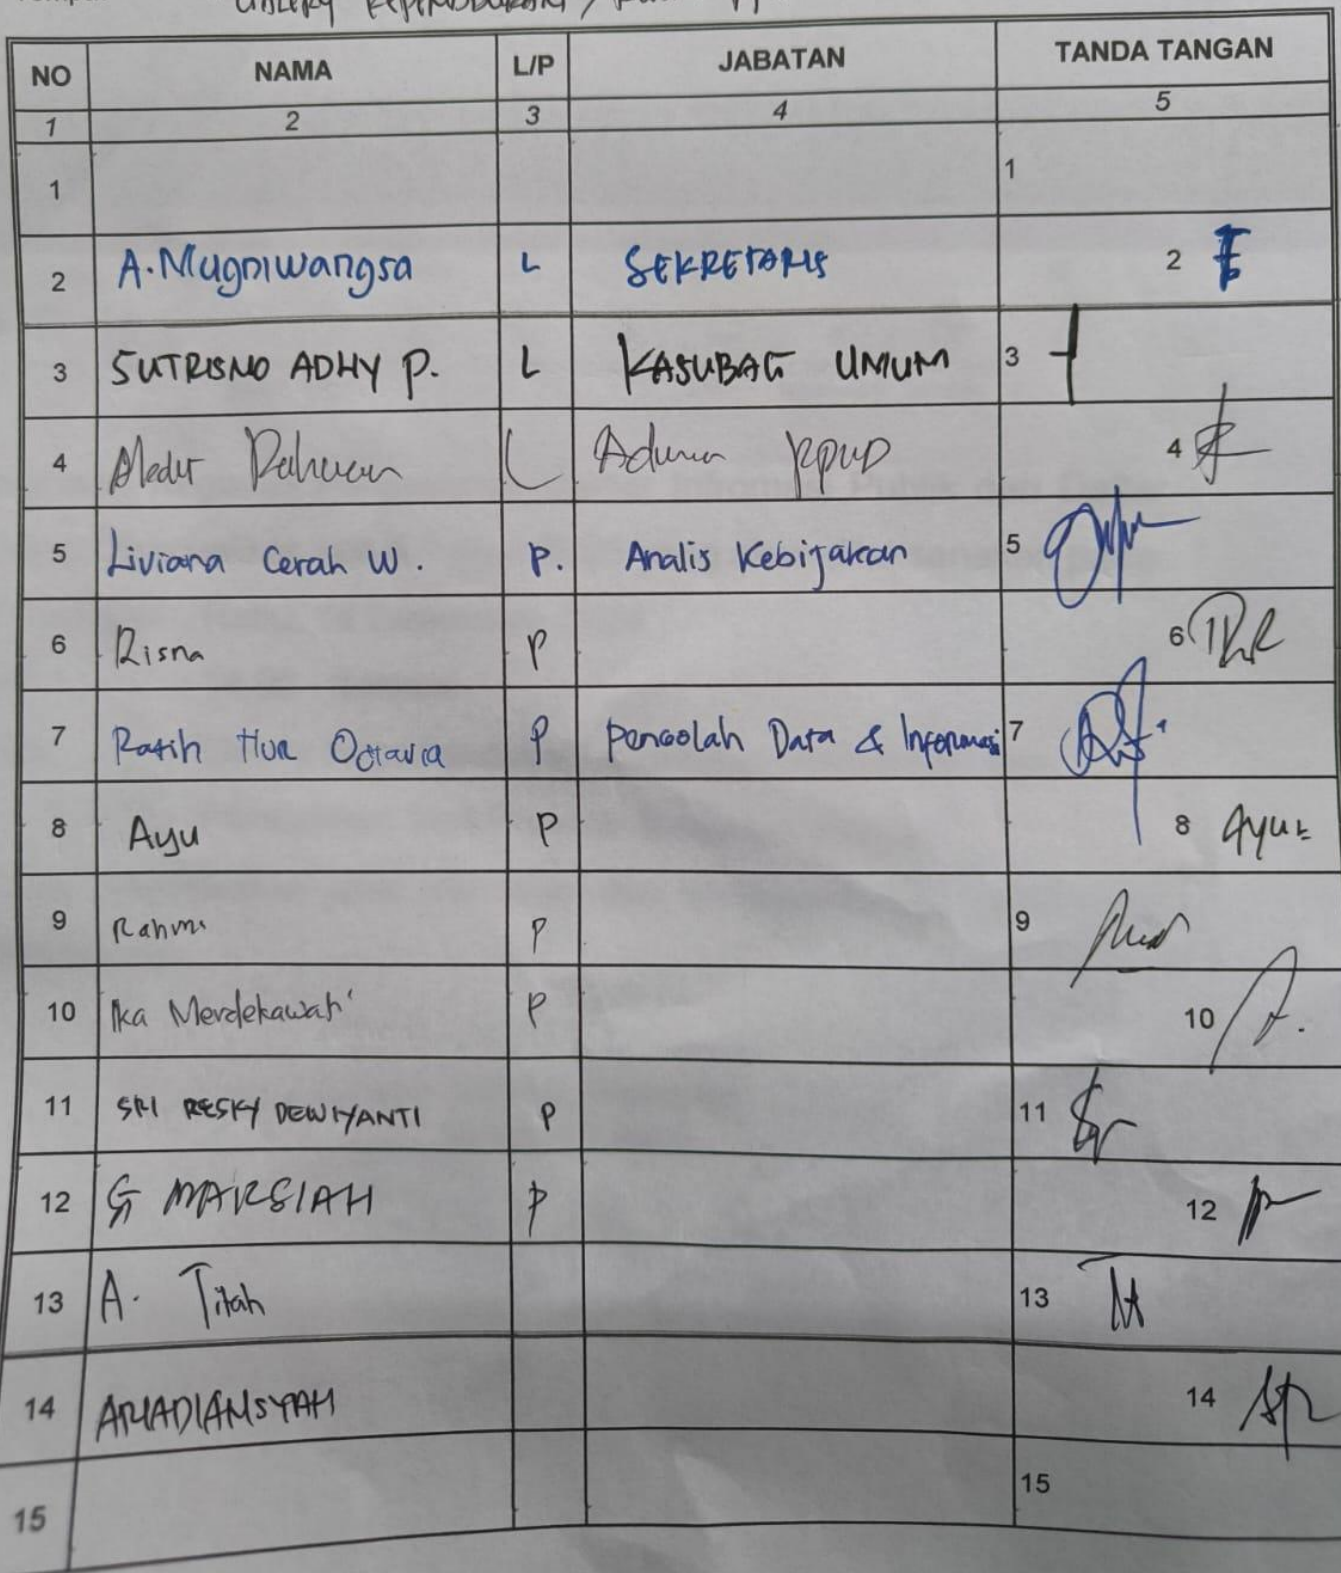 NO NAMA L/P JABATAN TANDA TANGAN
1 2 3 4 5
1 1
2 A. Mugniwangsa L SEKRETARIS 2
3 SUTRISNO ADHY P. L KASUBAG UMUM 3
4 L 4
5 Liviana Cerah W. P. Analis Kebijakan 5
6 Risna P 6
7 Ratih Nur Octavia P Pengolah Data & Informasi 7
8 Ayu P 8 Ayu
9 Rahmi P 9
10 Ika Merdekawati P 10
11 SRI RESKY DEWIYANTI P 11
12 MARSIAH P 12
13 A. Titah 13
14 ARIADIANSYAH 14
15 15